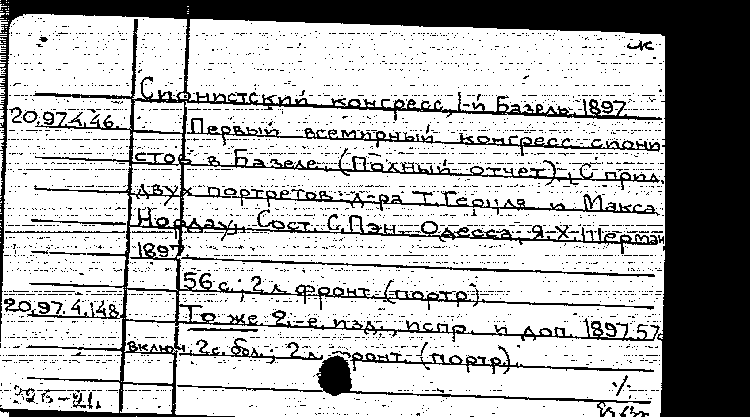 ск
Сионистский конгресс, 1-й Базель. 1897
20.97.4.46. Первый всемирный конгресс сиони-
стов в Базеле. (Полный отчет). С прил.
двух портретов д-ра Т. Герцля и Макса
Нордау. Сост. С. Пэн. Одесса, Я.Х. Шерман
1897.
56 с.; 2 л. фронт. (портр).
20.97.4.148 То же 2.-е, изд., испр. и доп. 1897. 57с
включ. 2 с. обл.; 2 л. фронт. (портр).